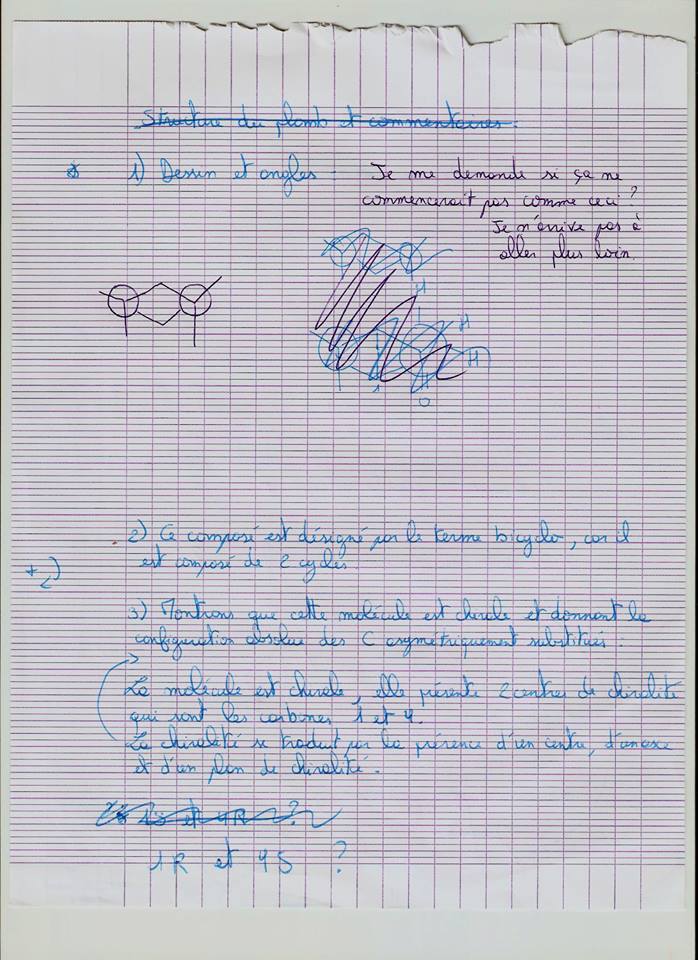 Structure du plomb et commentaires.
1) Dessin et angles - Je me demande si ça ne
commencerait pas comme ceci ?
Je n'arrive pas à
aller plus loin.
H
H
H
O
2) Ce composé est désigné par le terme bicyclo, car il
est composé de 2 cycles.
3) Montrons que cette molécule est chirale et donnent la
configuration absolue des C asymétriquement substitués :
La molécule est chirale, elle présente 2 centres de chiralité
qui sont les carbones 1 et 4.
La chiralité se traduit par la présence d'un centre, d'un axe
et d'un plan de chiralité.
1R et 4S ?